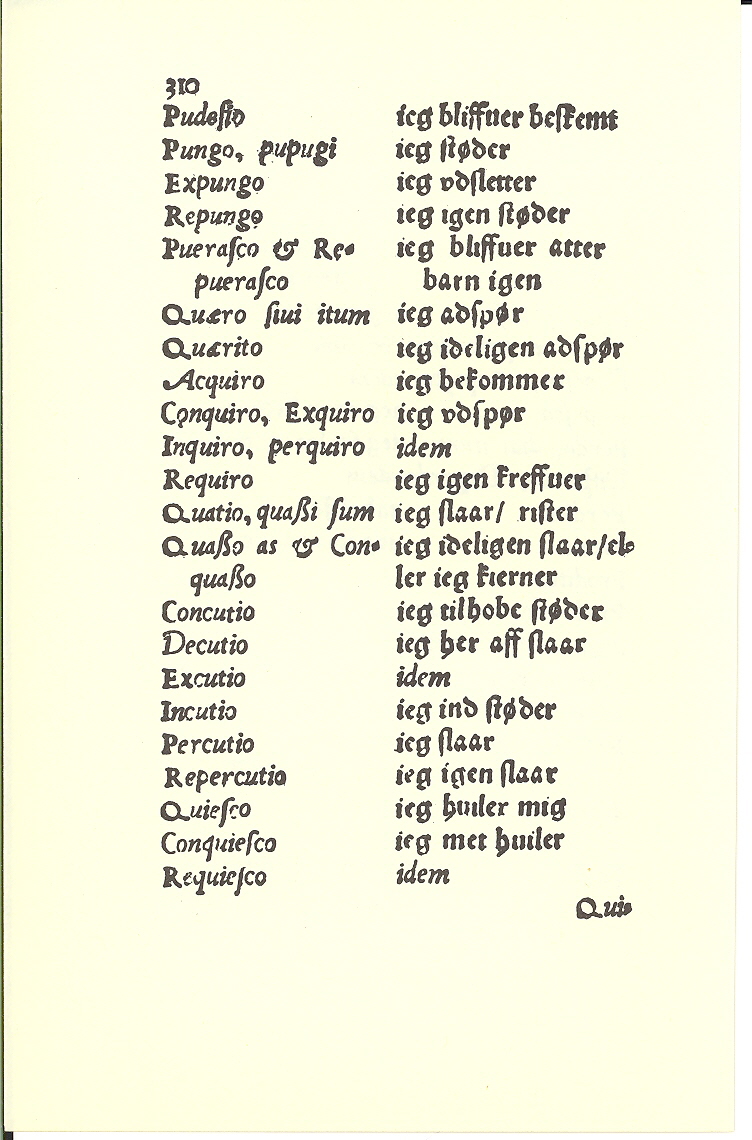 310
Pudeſio ieg bliffuer beſkemt
Pungo, pupugi ieg ſtøder
Expungo ieg vdſletter
Repungo ieg igen ſtøder
Pueraſco & Re- ieg bliffuer atter
pueraſco barn igen
Quæro ſiui itum ieg adſpør
Quærito ieg ideligen adſpør
Acquiro ieg bekommer
Conquiro, Exquiro ieg vdſpør
Inquiro, perquiro idem
Requiro ieg igen kreffuer
Quatio, quaßi ſum ieg ſlaar/ riſter
Quaßo as & Con- ieg ideligen ſlaar/el-
quaßo ler ieg kierner
Concutio ieg tilhobe ſtøder
Decutio ieg her aff ſlaar
Excutio idem
Incutio ieg ind ſtøder
Percutio ieg ſlaar
Repercutio ieg igen ſlaar
Quieſco ieg huiler mig
Conquieſco ieg met huiler
Requieſco idem
Qui-